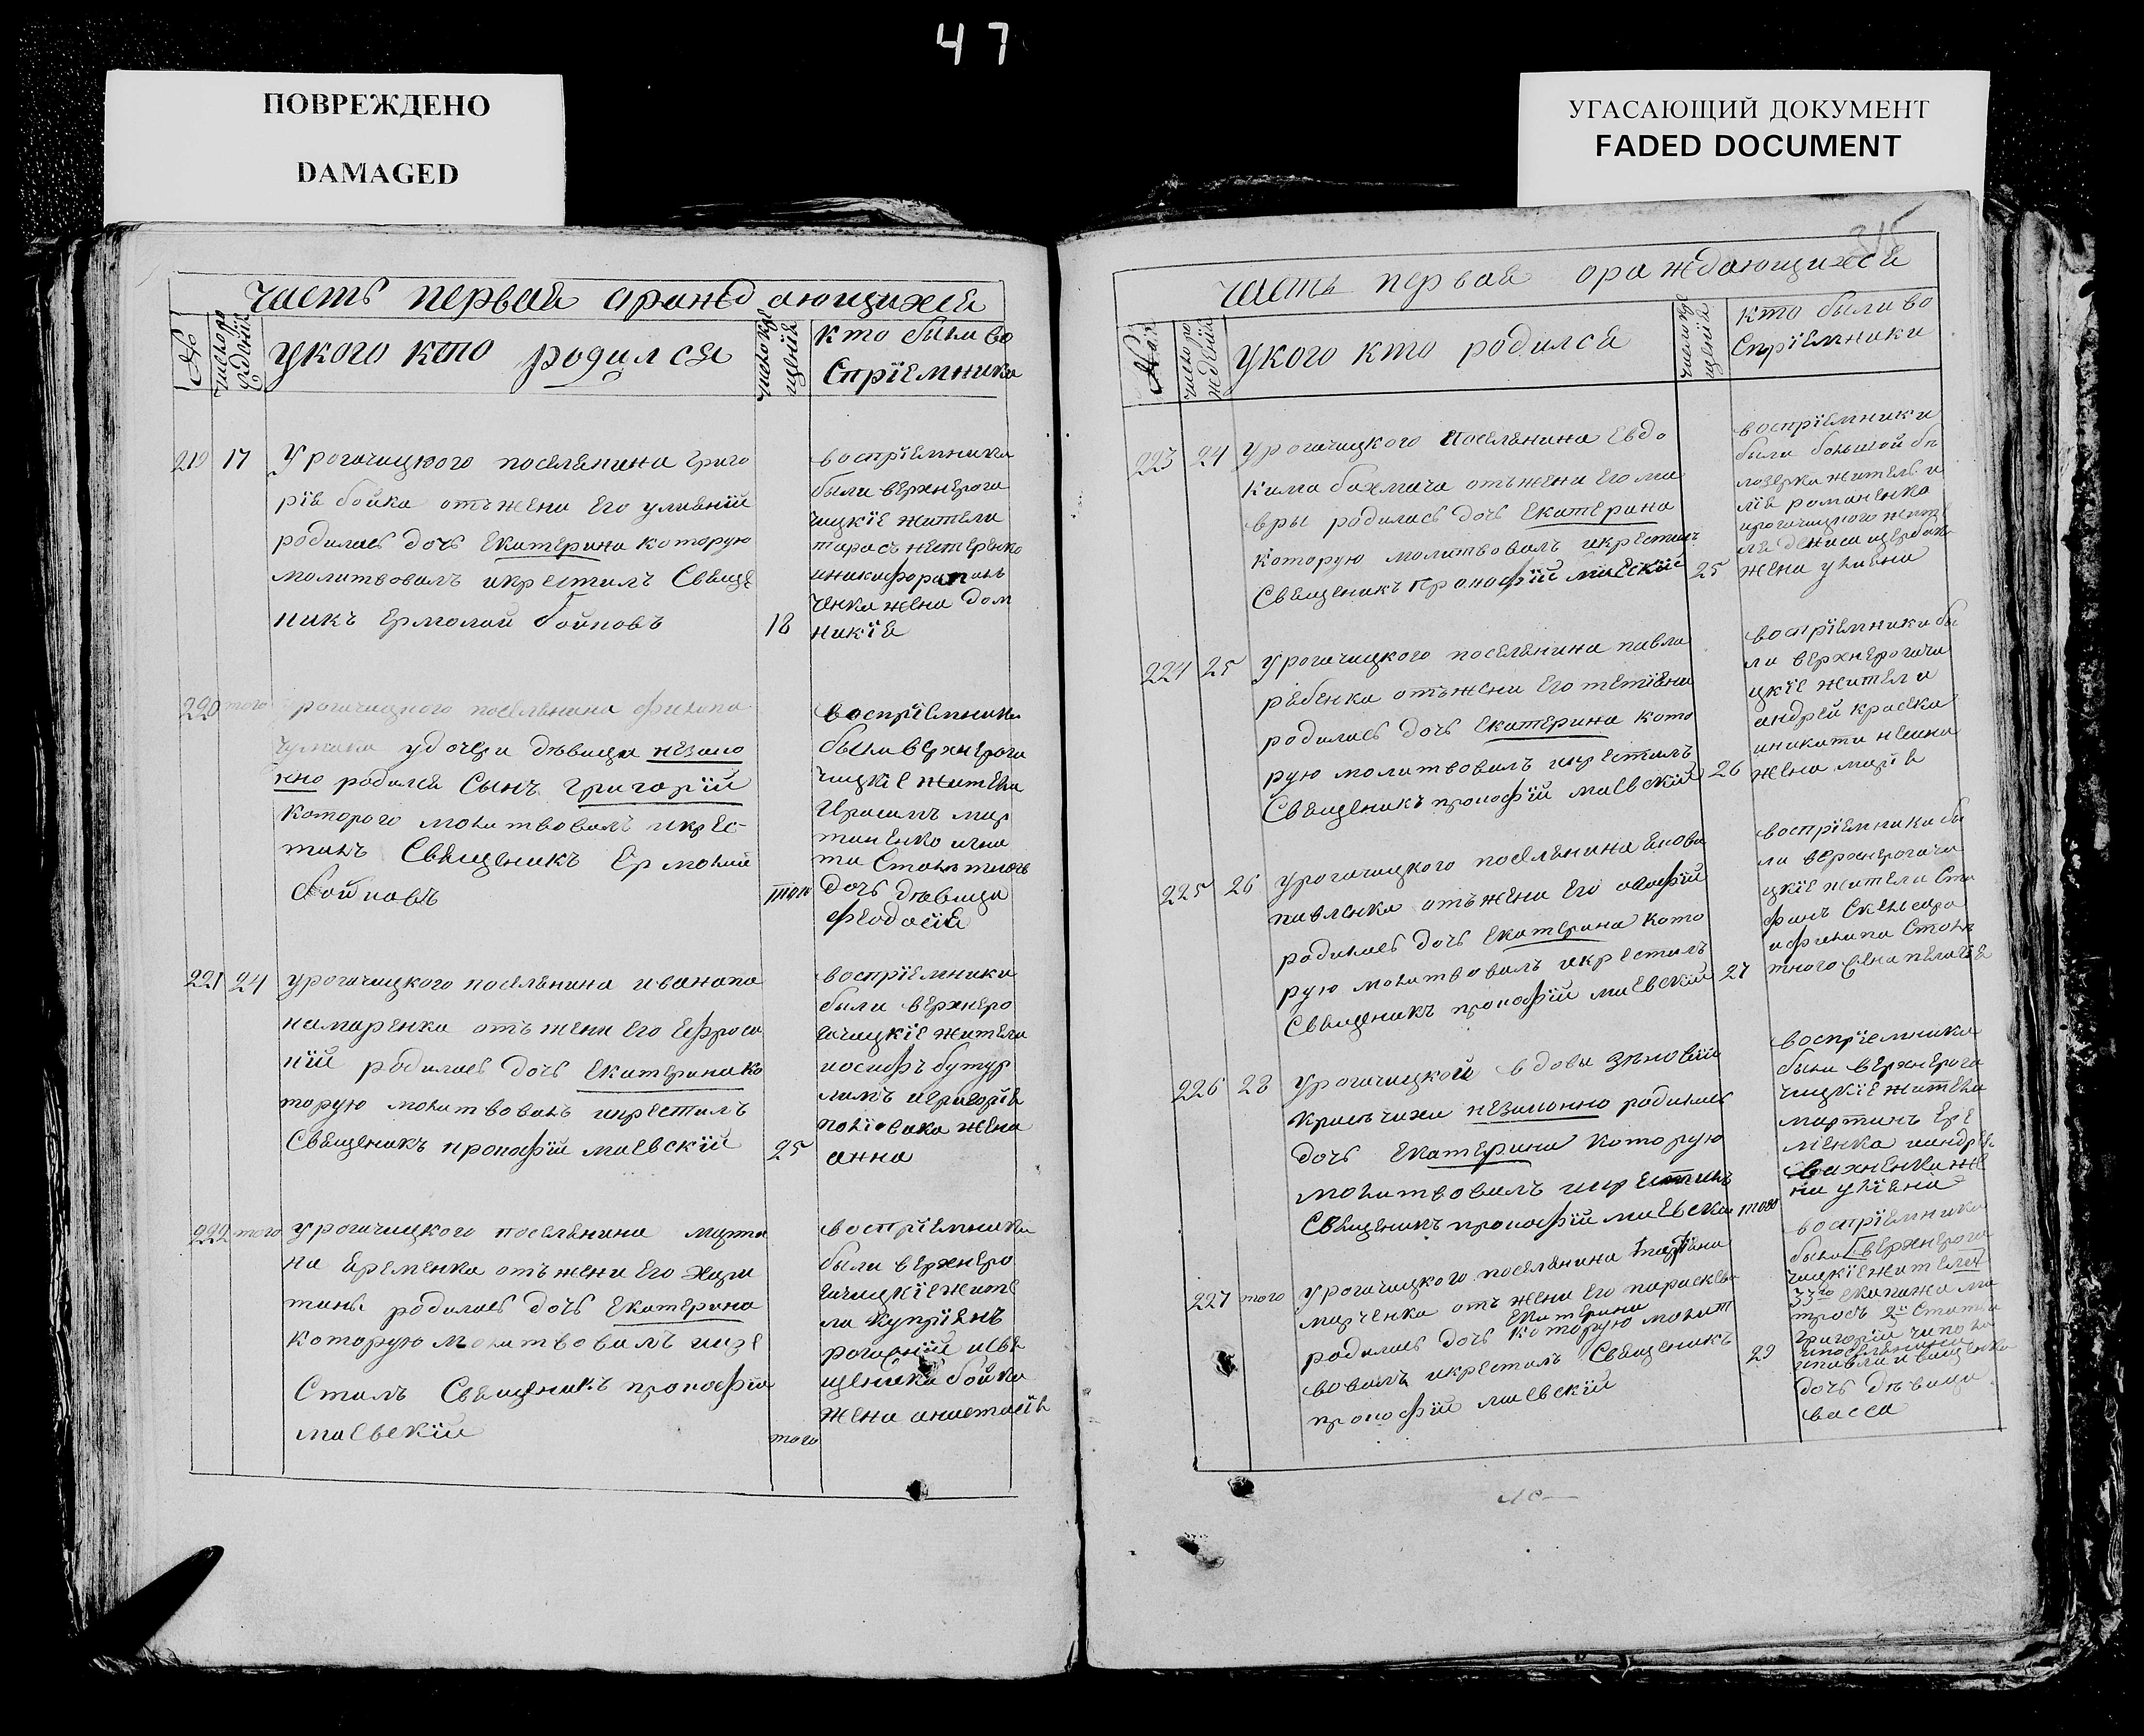 47
ПОВРЕЖДЕНО
DAMAGED
УГАСАЮЩИЙ ДОКУМЕНТ
FADED DOCUMENT
часть первая ораждающихся
№
число ро
ждения
укого кто родился
число кре
щенія
кто были во
спріемники
219 17
Урогачицкого поселянина григо
рія бойка отъ жени его уліяніи
родилась дочь Екатерина которую
молитвовалъ икрестилъ Свяще
никъ Ермолай бойновъ
18
воспріемники
были верхнерога
чицкіе жители
тарасъ нестеренко
жена дом
никія
220 того
урогачицкого поселянина филипа
чумака удочери дѣвици незако
нно родился Сынъ григорій
которого молитвовалъ икрес-
тилъ Священикъ Ермолай
бойновъ
того
воспріемники
были верхнерога
чицкіе жители
Герасимъ мар
тиненко
дочь дѣвица
феодосія
221 24
урогачицкого поселянина ивана по
намаренка отъ жени его ефроси
ніи родилась дочь Екатерина ко
торую молитвовалъ икрестилъ
Священикъ прокофій маевскій
25
воспріемники
были верхнеро
гачицкіе жители
иосифъ бутур
лимъ игригорія
жена
анна
222 того
урогачицкого поселянина марти
на яременка отъ жени его хари
тини родилась дочь Екатерина
которую молитвовалъ икре
Стилъ Священикъ прокофій
маевскій
того
воспріемники
были верхнеро
гачицкіе жите
ли купріянъ
бойка
жена анастасія
часть первая ораждающихся
укого кто родился
число кре
щенія
кто были во
спріемники
223 24
урогачицкого поселянина Евдо
кима бахмача отъ жени его ма
вры родилась дочь Екатерина
которую молитвовалъ икрестилъ
Священикъ прокофій маевскій
25
воспріемники
были большой бѣ
лозерка житель и
лія романенко
ирогачицкого жите
ля дениса щербак
жена уліяна
224 25
урогачицкого поселянина павла
рябенка отъ жени его тетіяни
родилась дочь Екатерина кото
рую молитвовалъ икрестилъ
Священикъ прокофій маевскій
26
воспріемники бы
ли верхнерогачи
цкіе жители
андрей
иникити
жена марія
225 26
урогачицкого поселянина якова
павленка отъ жени его агафіи
родилась дочь Екатерина кото
рую молитвовалъ икрестилъ
Священикъ прокофій маевскій
27
воспріемники бы
ли верхнерогачи
цкіе жители Сте
фанъ
ифилипа Столя
тного жена пелагія
226 28
урогачицкой вдови зѣновіи
незаконно родилась
дочь Екатерина которую
молитвовалъ икрестилъ
Священикъ прокофій маевскій
того
воспріемники
были верхнерога
чицкіе жители
мартинъ Ере
менка иандрея
вахненка же
на уліяна
227 того
урогачицкого поселянина
марченка отъ жени его параскеви
родилась дочь Екатерина которую молит
вовалъ икрестилъ Священикъ
прокофій маевскій
29
воспріемники
были верхнерога
чицкіе жители
33го екипажа ма
трозъ 2й Статьи
григорій
ипоселянина
ипавла иващенка
дочь дѣвица
васса